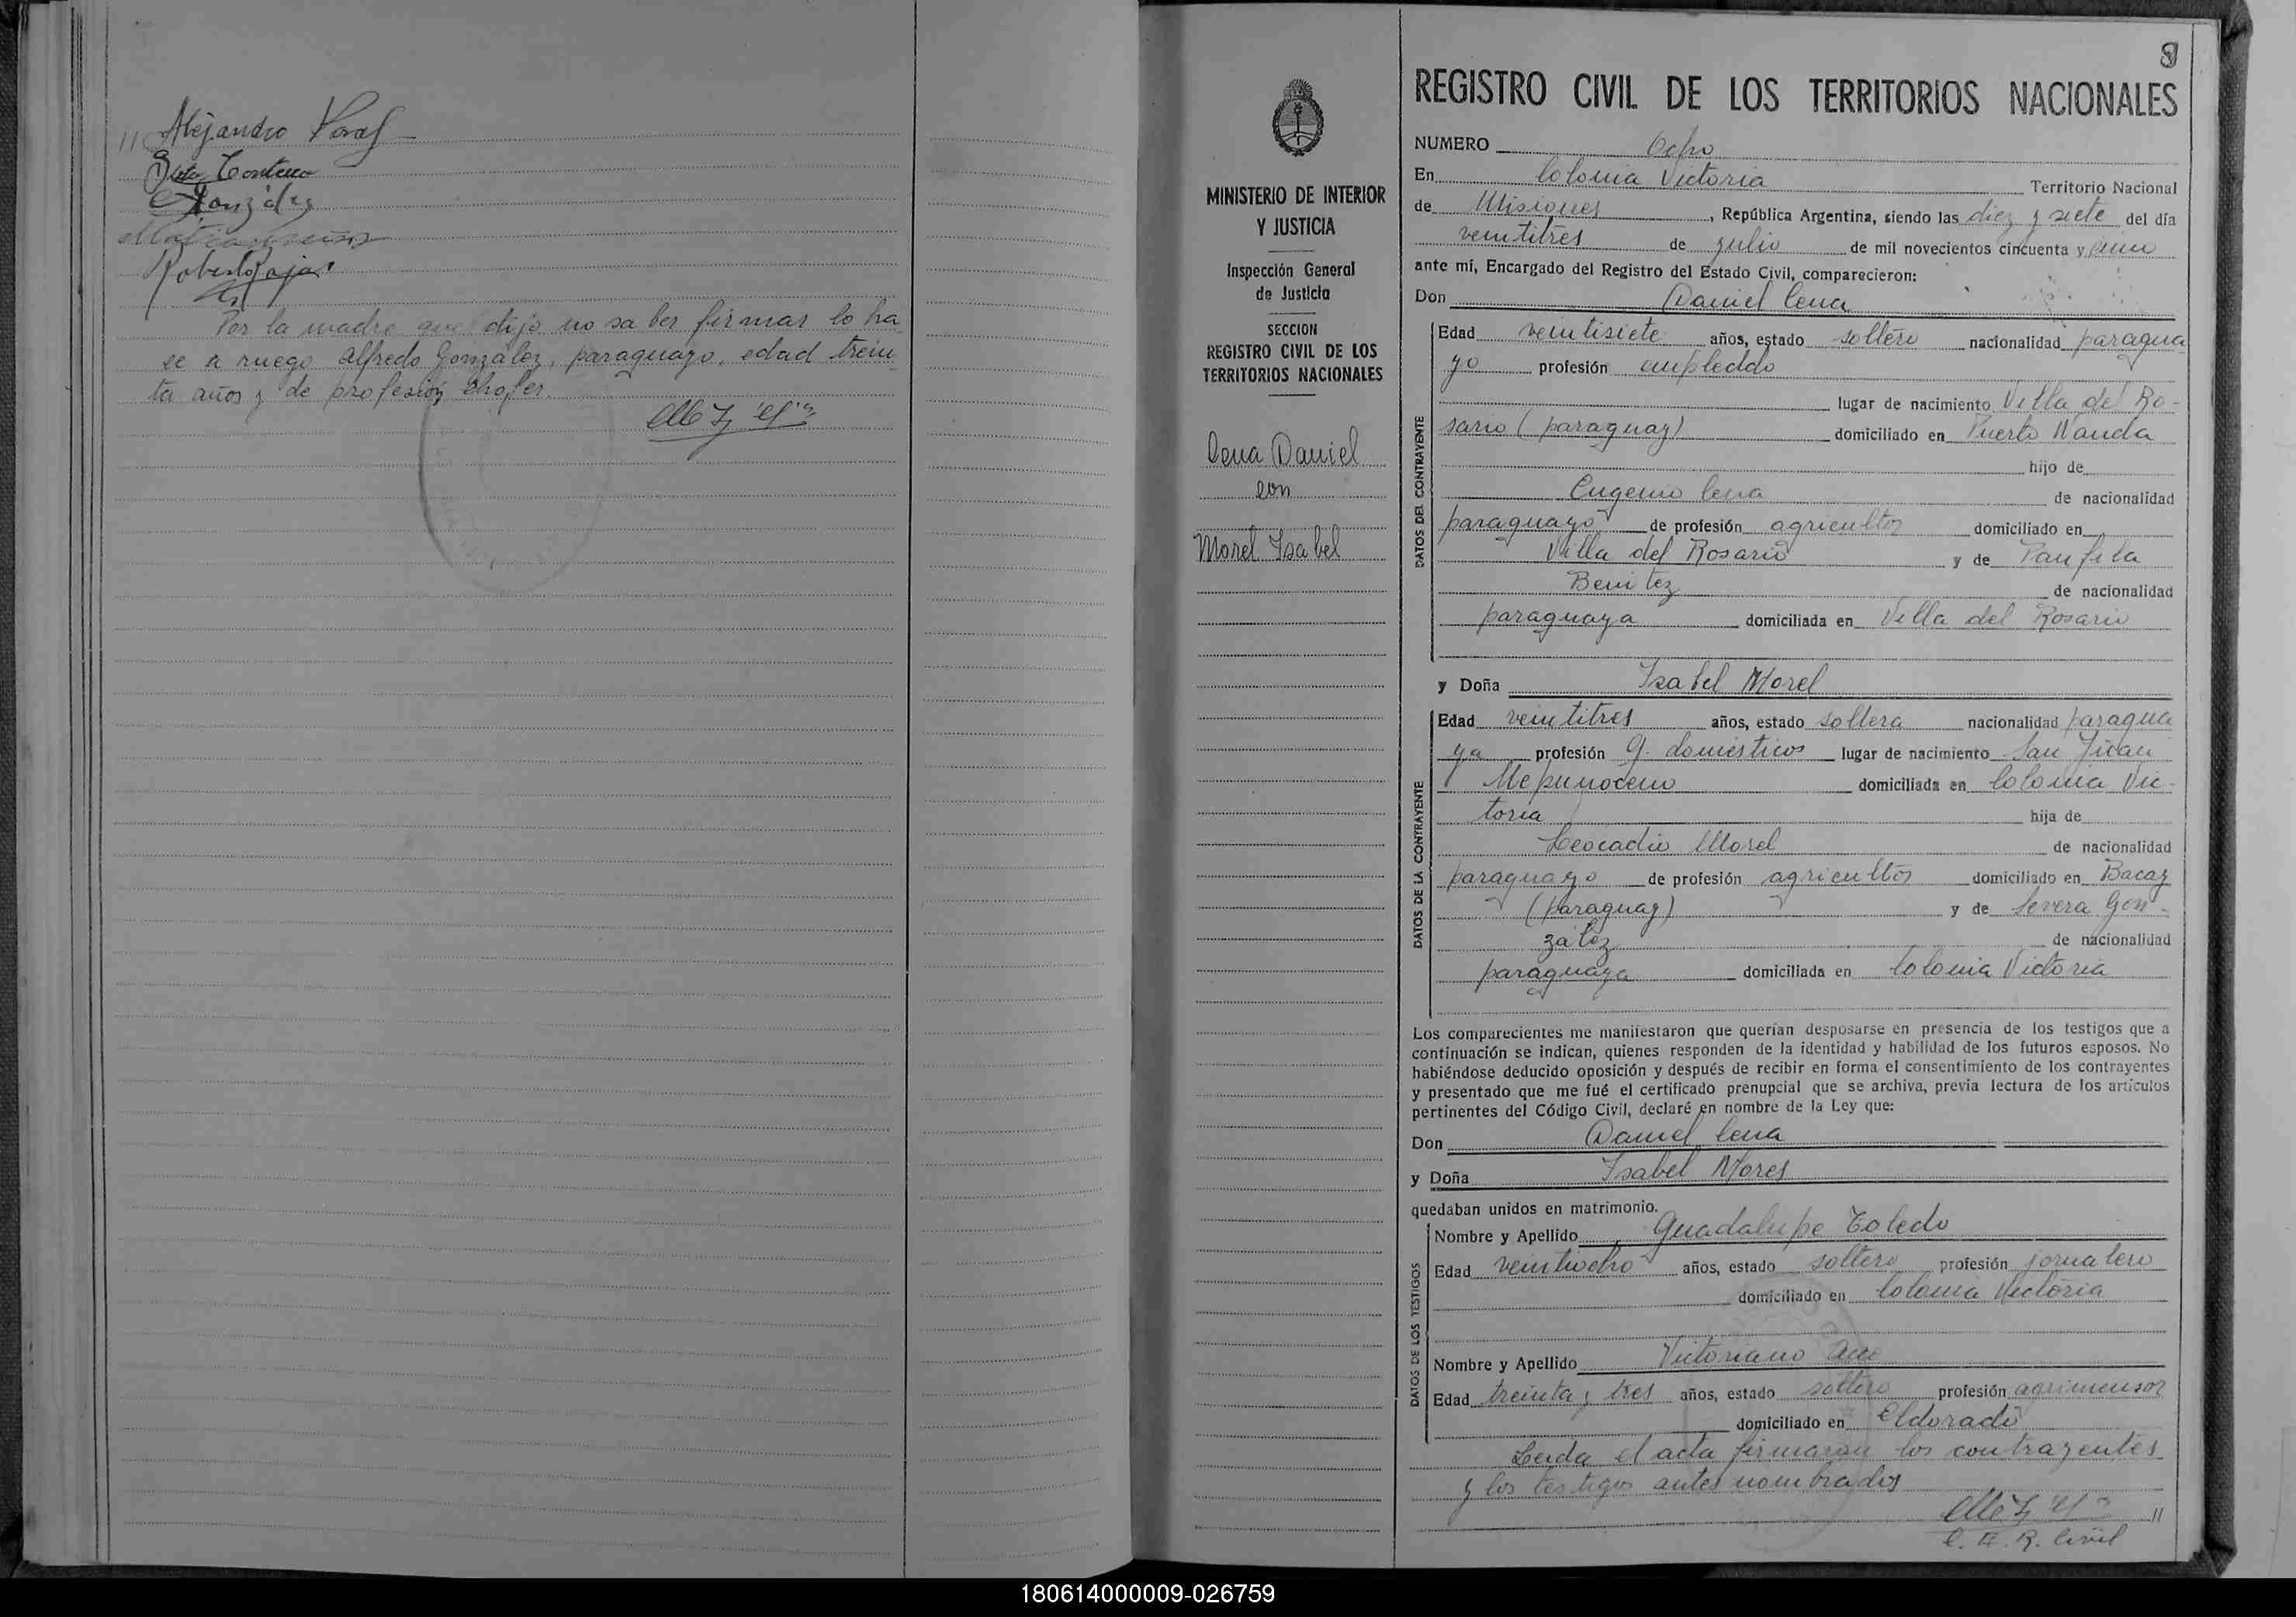 // Alejandro
González
Roberto Rojas
Por la madre que dijo no saber firmar lo ha
se a ruego Alfredo González, paraguayo, edad trein
ta años y de profesión chofer.
MINISTERIO DE INTERIOR
Y JUSTICIA
Inspección General
de Justicia
SECCION
REGISTRO CIVIL DE LOS
TERRITORIOS NACIONALES
Cena Daniel
con
Morel Isabel
8
REGISTRO CIVIL DE LOS TERRITORIOS NACIONALES
NUMERO Ocho
En Colonia Victoria Territorio Nacional
de Misiones, República Argentina, siendo las diez y siete del día
veintitres de julio de mil novecientos cincuenta y uno
ante mí, Encargado del Registro del Estado Civil, comparecieron:
Don Daniel Cena
DATOS DEL CONTRAYENTE
Edad veintisiete años, estado soltero nacionalidad paragua
yo profesión empleado
lugar de nacimiento Villa del Ro-
sario (paraguay) domiciliado en Puerto Wanda
hijo de
Eugenio Cena de nacionalidad
paraguayo de profesión agricultor domiciliado en
Villa del Rosario y de Panfila
Benitez de nacionalidad
paraguaya domiciliada en Villa del Rosario
y Doña Isabel Morel
DATOS DE LA CONTRAYENTE
Edad veintitres años, estado soltera nacionalidad paragua
ya profesión q. domésticos lugar de nacimiento San Juan
Nepumoceno domiciliada en Colonia Vic-
toria hija de
Leocadio Morel de nacionalidad
paraguayo de profesión agricultor domiciliado en Bacay
(paraguay) y de Severa Gon-
zález de nacionalidad
paraguaya domiciliada en Colonia Victoria
Los comparecientes me manifestaron que querían desposarse en presencia de los testigos que a
continuación se indican, quienes responden de la identidad y habilidad de los futuros esposos. No
habiéndose deducido oposición y después de recibir en forma el consentimiento de los contrayentes
y presentado que me fué el certificado prenupcial que se archiva, previa lectura de los artículos
pertinentes del Código Civil, declaré en nombre de la Ley que:
Don Daniel Cena
y Doña Isabel Morel
quedaban unidos en matrimonio.
DATOS DE LOS TESTIGOS
Nombre y Apellido Guadalupe Toledo
Edad veintiocho años, estado soltero profesión jornalero
domiciliado en Colonia Victoria
Nombre y Apellido Victoriano
Edad treinta y tres años, estado soltero profesión agrimensor
domiciliado en Eldorado
Leida el acta firmaran los contrayentes
y los testigos antes nombrados
//
E. R. Civil
180614000009-026759